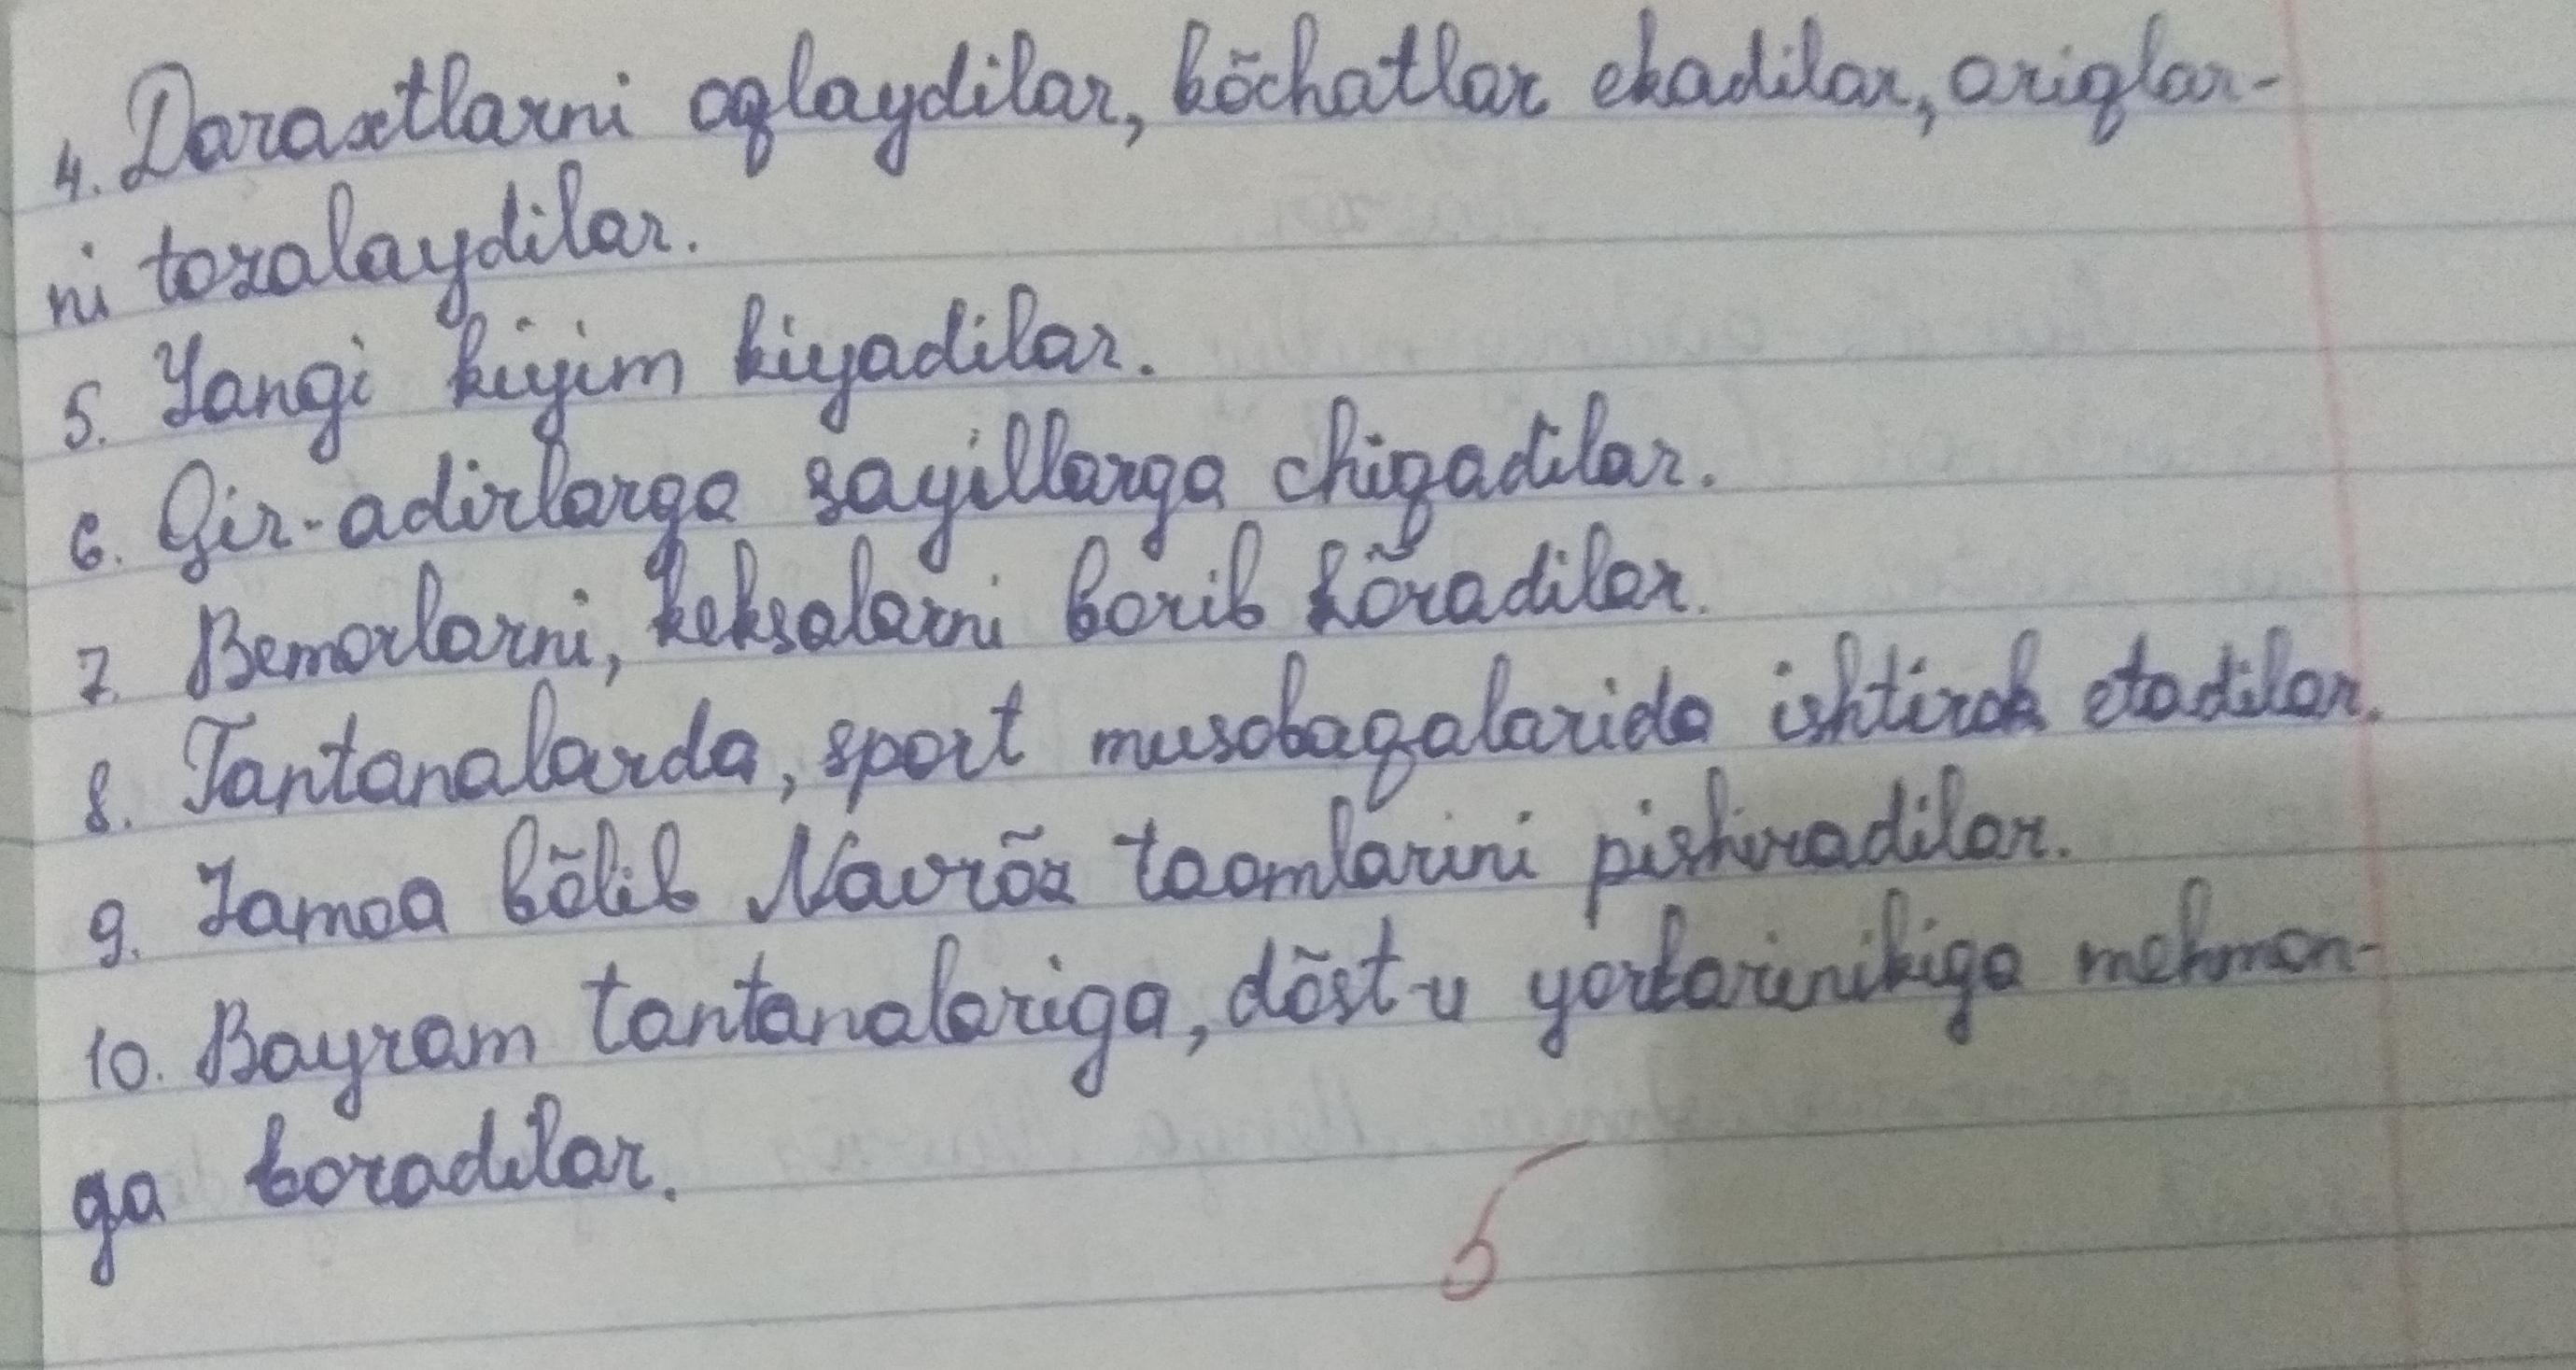 4. Daraxtlarni oqlaydilar, kõchatlar ekadilar, ariqlar-
ni tozalaydilar.
5. Yangi kiyim kiyadilar.
6. Qir-adirlarga sayillarga chiqadilar.
7. Bemorlarni, keksalarni borib kõradilar.
8. Tantanalarda, sport musobaqalarida ishtirok etadilar.
9. Jamoa bõlib Navrõz taomlarini pishiradilar.
10. Bayram tantanalariga, dõst-u yorlarinikiga mehmon-
ga boradilar.
5